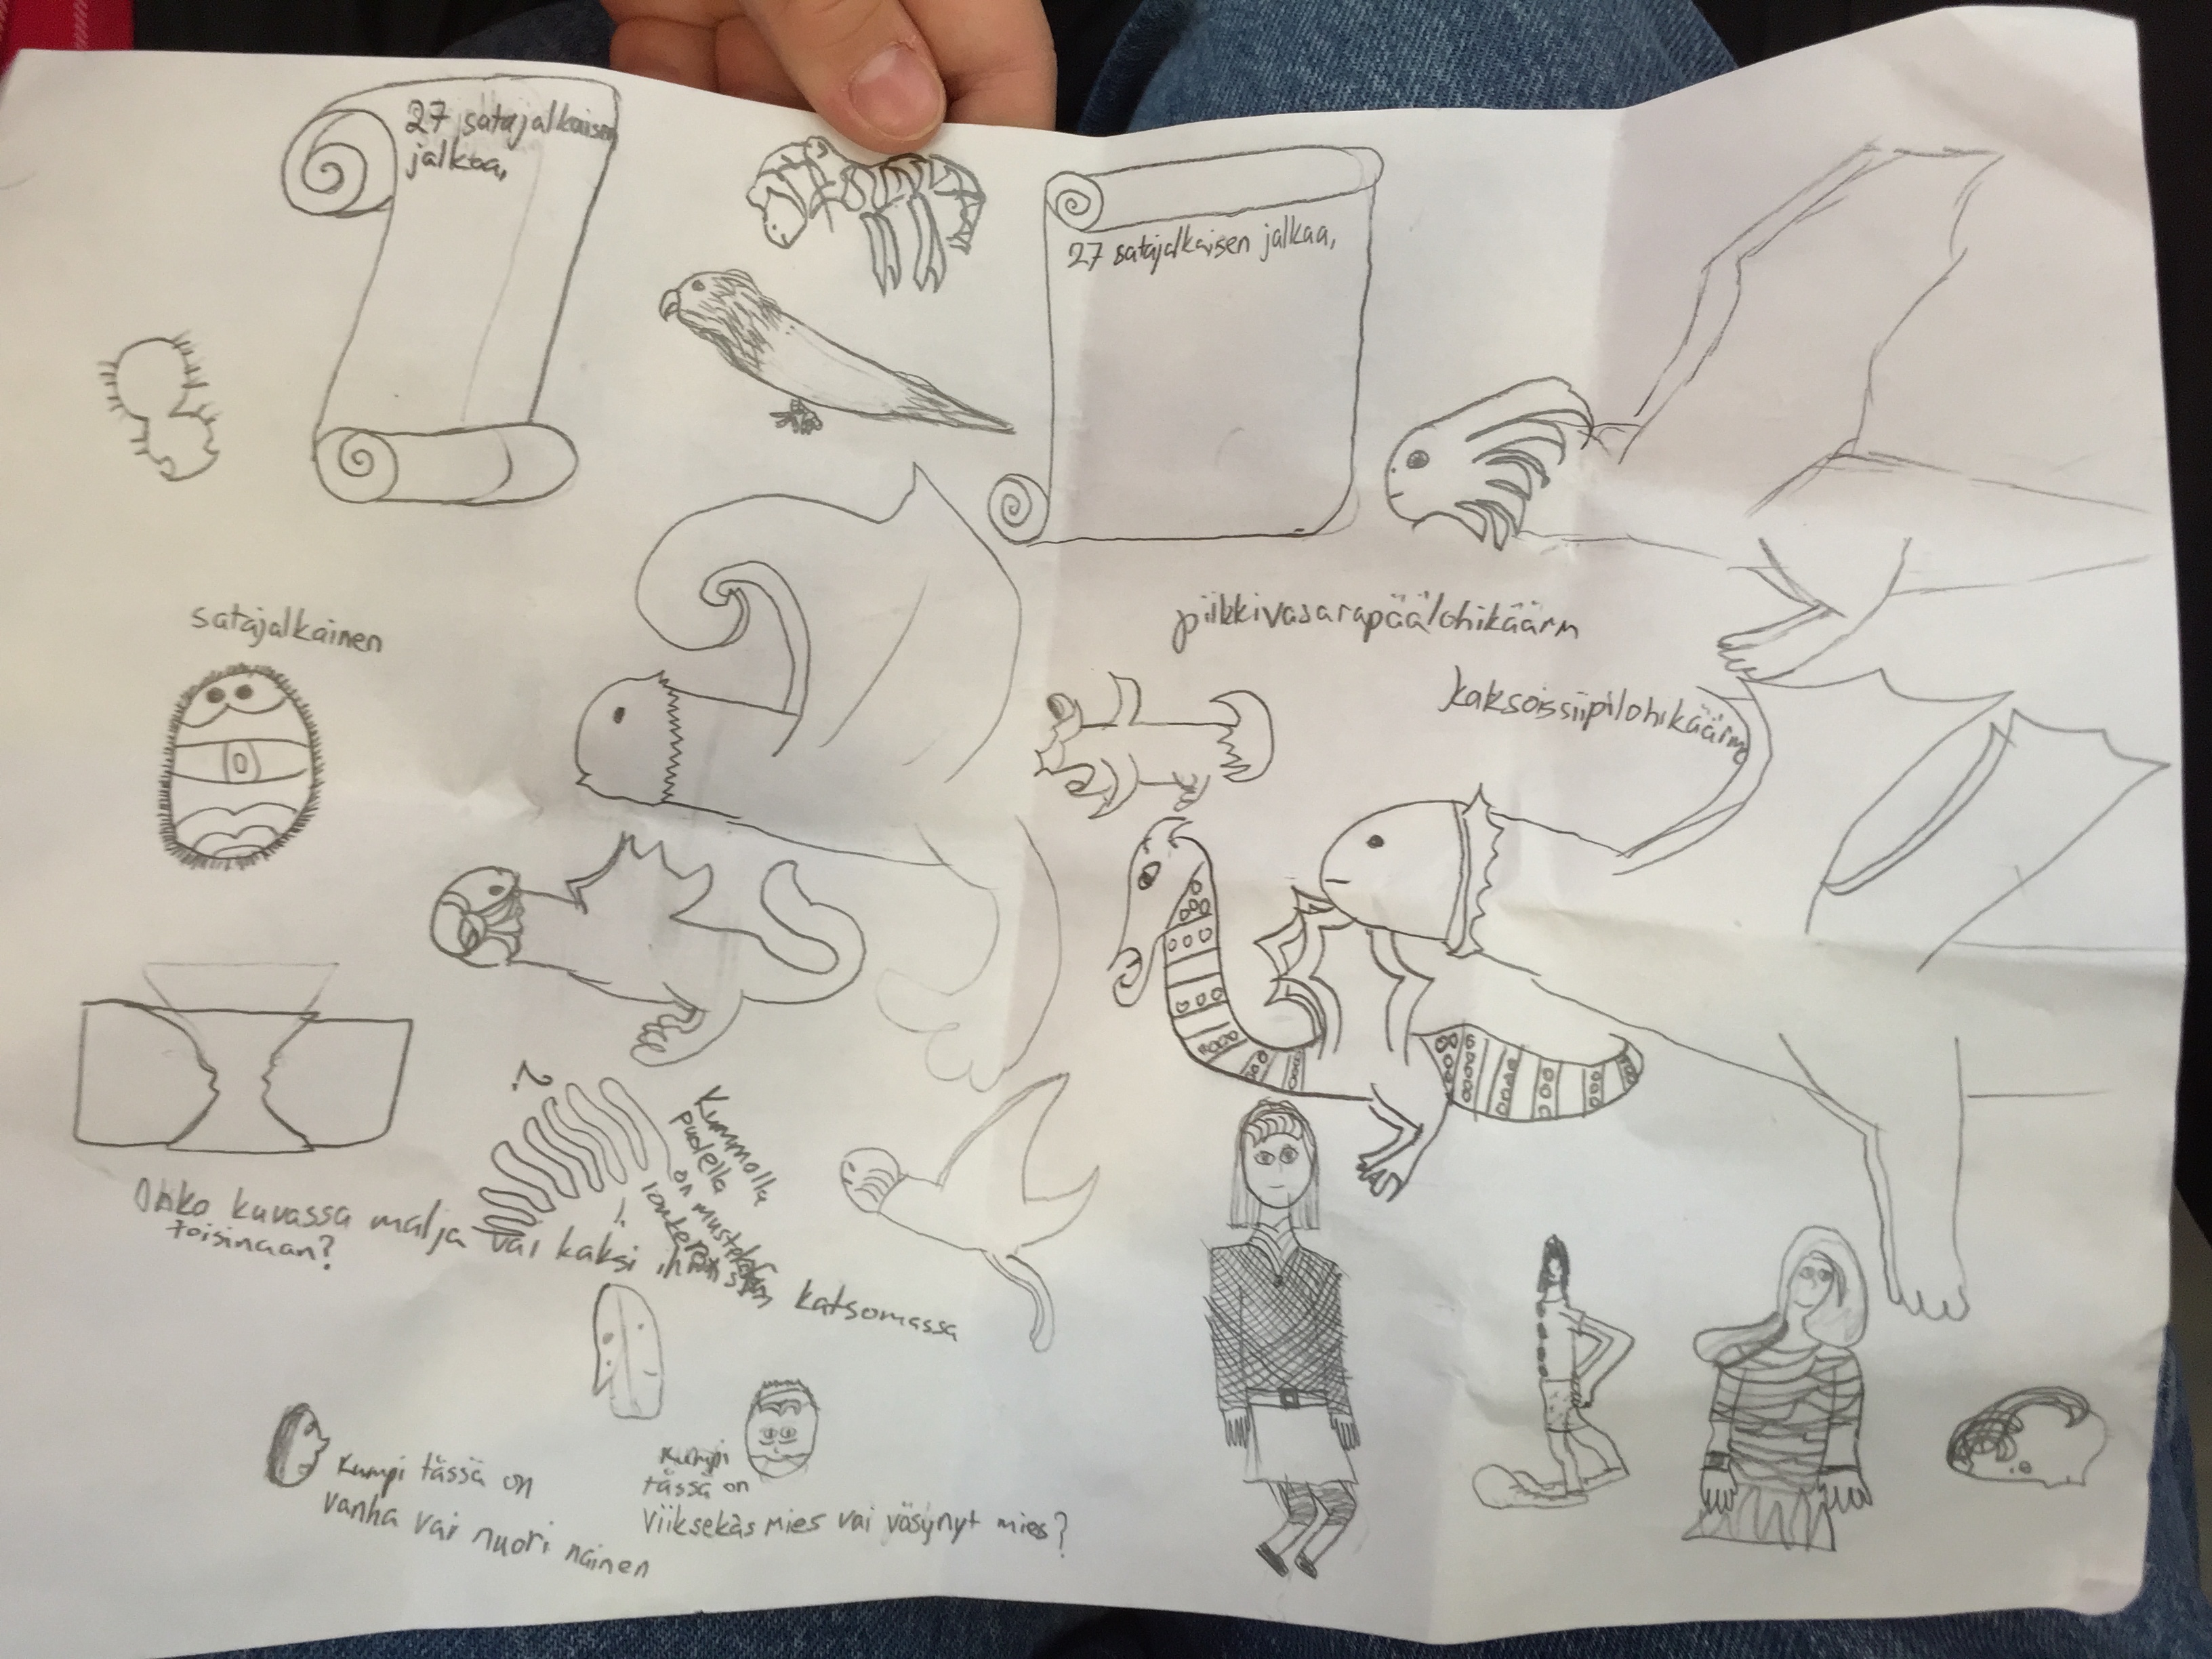 27 satajalkaisen
jalkaa,
27 satajalkaisen jalkaa,
satajalkainen
piikkivasarapäälohikäärm
kaksoissiipilohikäärm
2.
Kummalla
puolella
on mustekalan
lonkerot
1.
Onko kuvassa malja vai kaksi ihmistä katsomassa
toisinaan?
Kumpi tässä on
vanha vai nuori nainen
Kumpi
tässä on
Viiksekäs mies vai väsynyt mies?